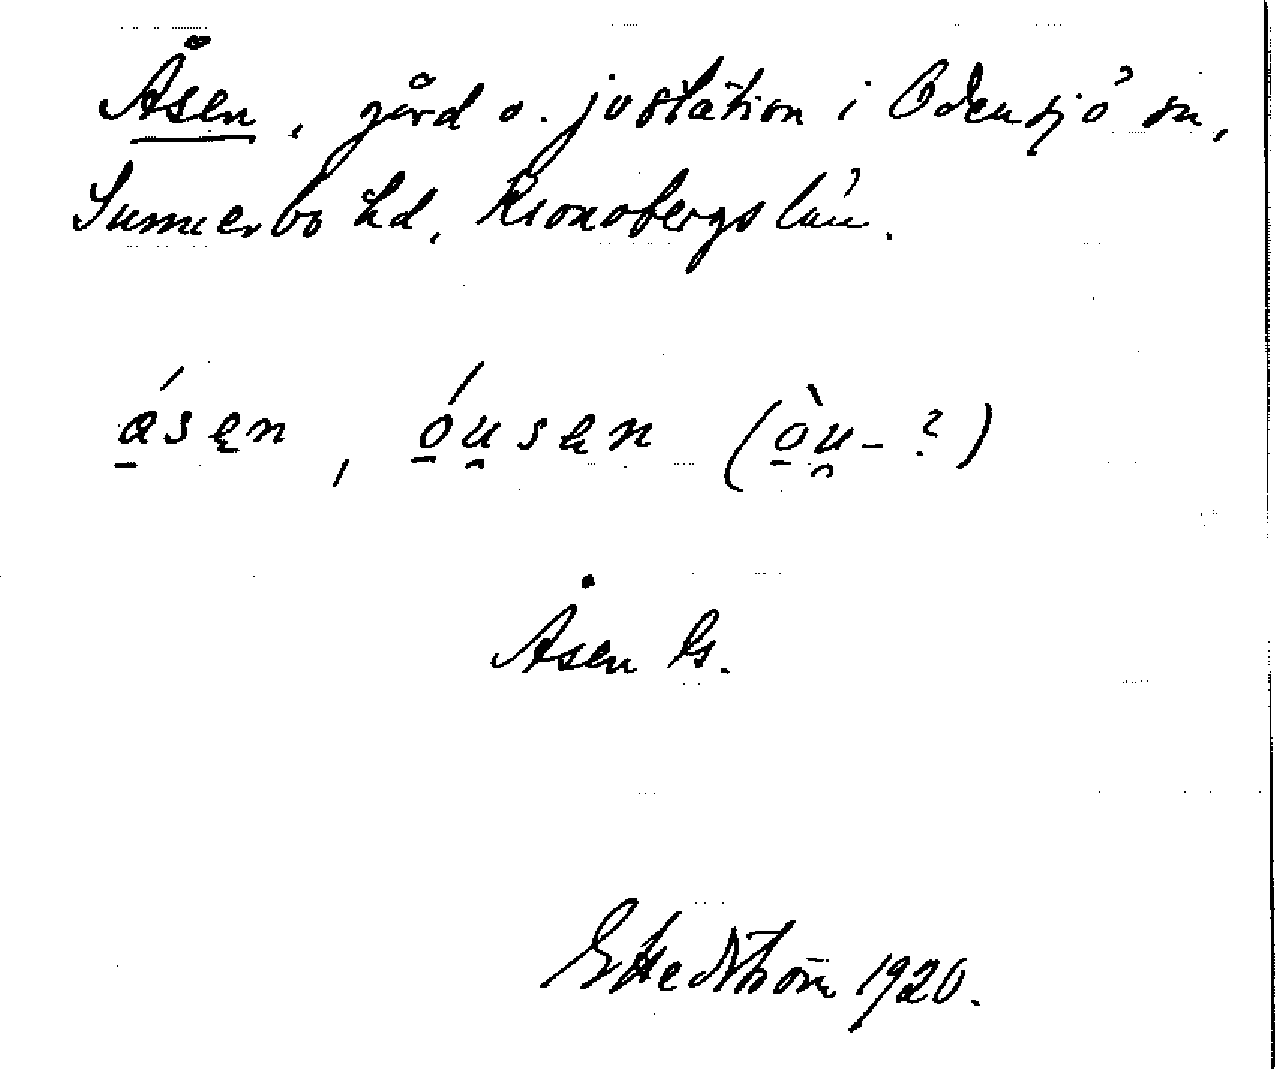 Åsen, gård o. jvstation i Odensjö sn,
Sunnerbo hd, Kronobergs län.
ásen, óusen (òu- ?)
Åsen Gs.
G Hedström 1920.